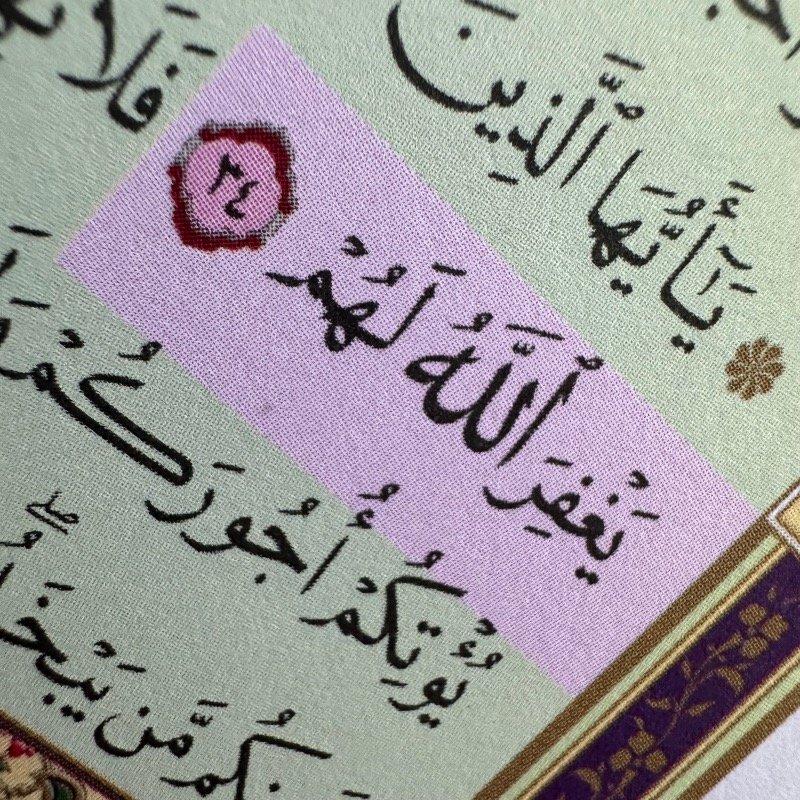 ۞ يَـٰٓأَيُّهَا ٱلَّذِينَ
يَغْفِرَ ٱللَّهُ لَهُمْ ٣٤ فَلَا
يُؤْتِكُمْ أُجُورَكُمْ
نكُم مَّن يَبْخَلُ ۖ